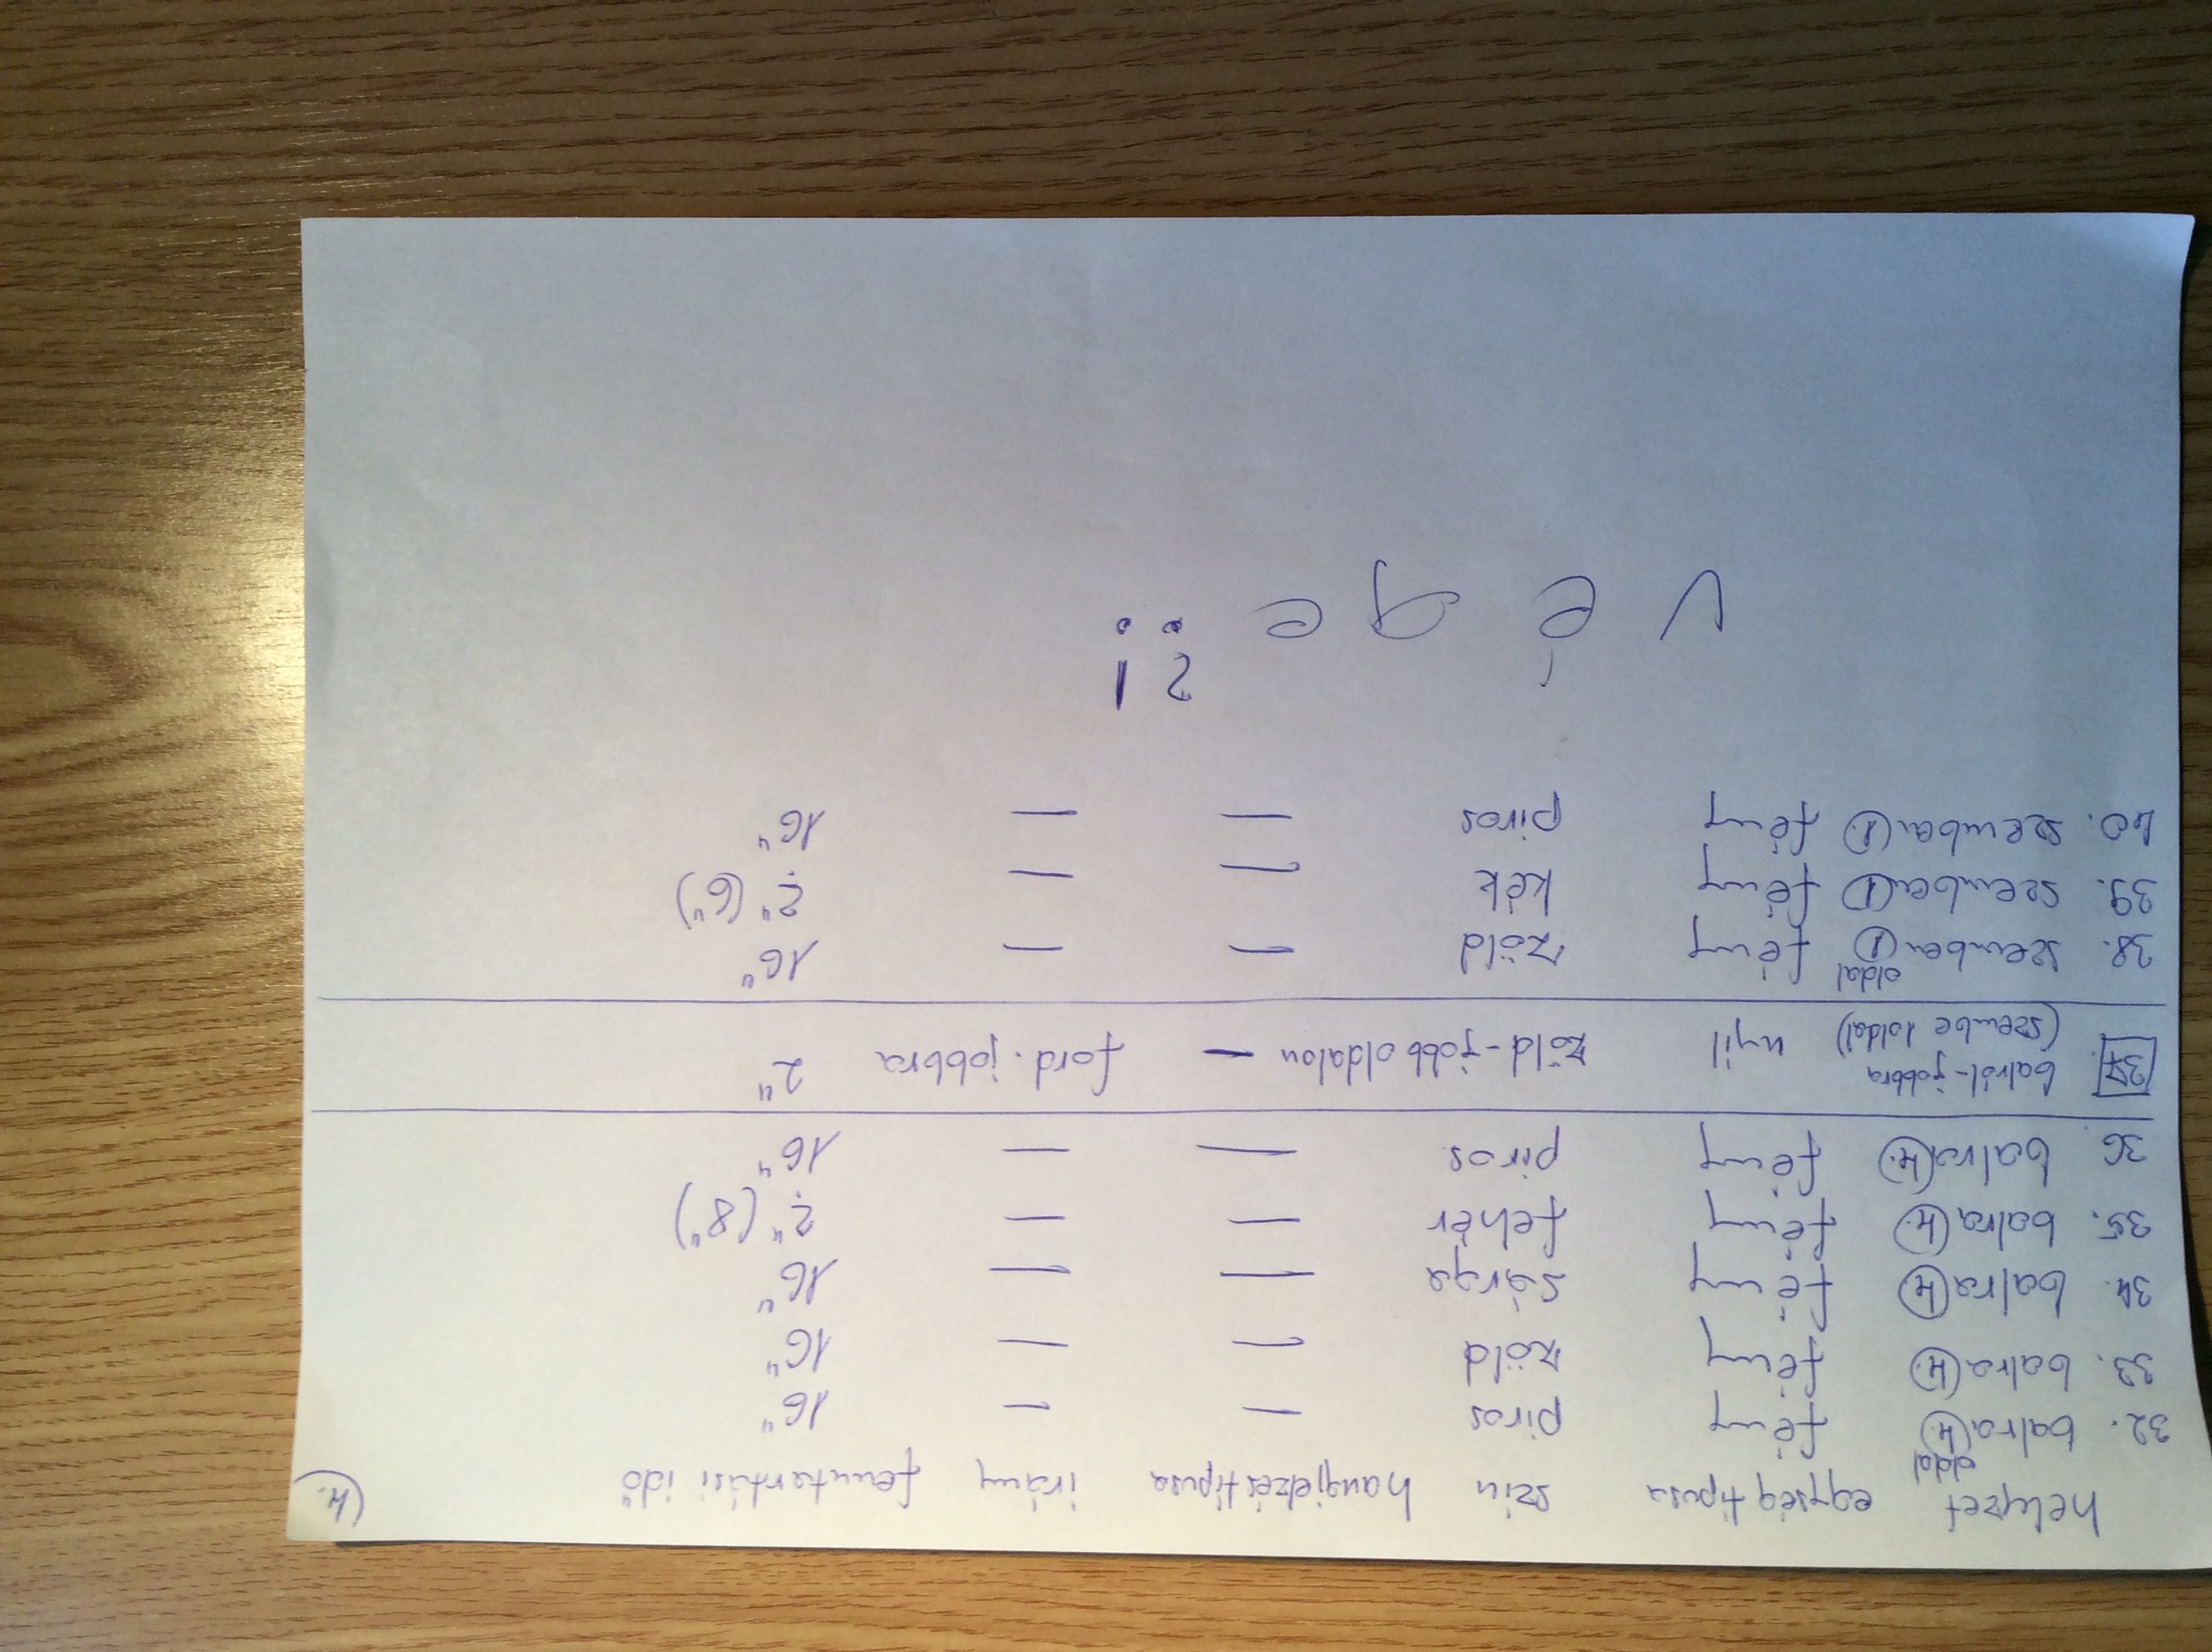 helyzet egység típusa szín hangjelzés típusa irány fenntartási idő 4.
oldal
32. balra 4. fény piros — — 16"
33. balra 4. fény zöld — — 16"
34. balra 4. fény sárga — — 16"
35. balra 4. fény fehér — — ?" (8")
36. balra 4. fény piros — — 16"
37. balról-jobbra
(szembe 1 oldal) nyíl zöld-jobb oldalon — ford. jobbra 2"
oldal
38. szemben 1 fény zöld — — 16"
39. szemben 1 fény kék — — ?" (6")
40. szemben 1. fény piros — — 16"
vége?!